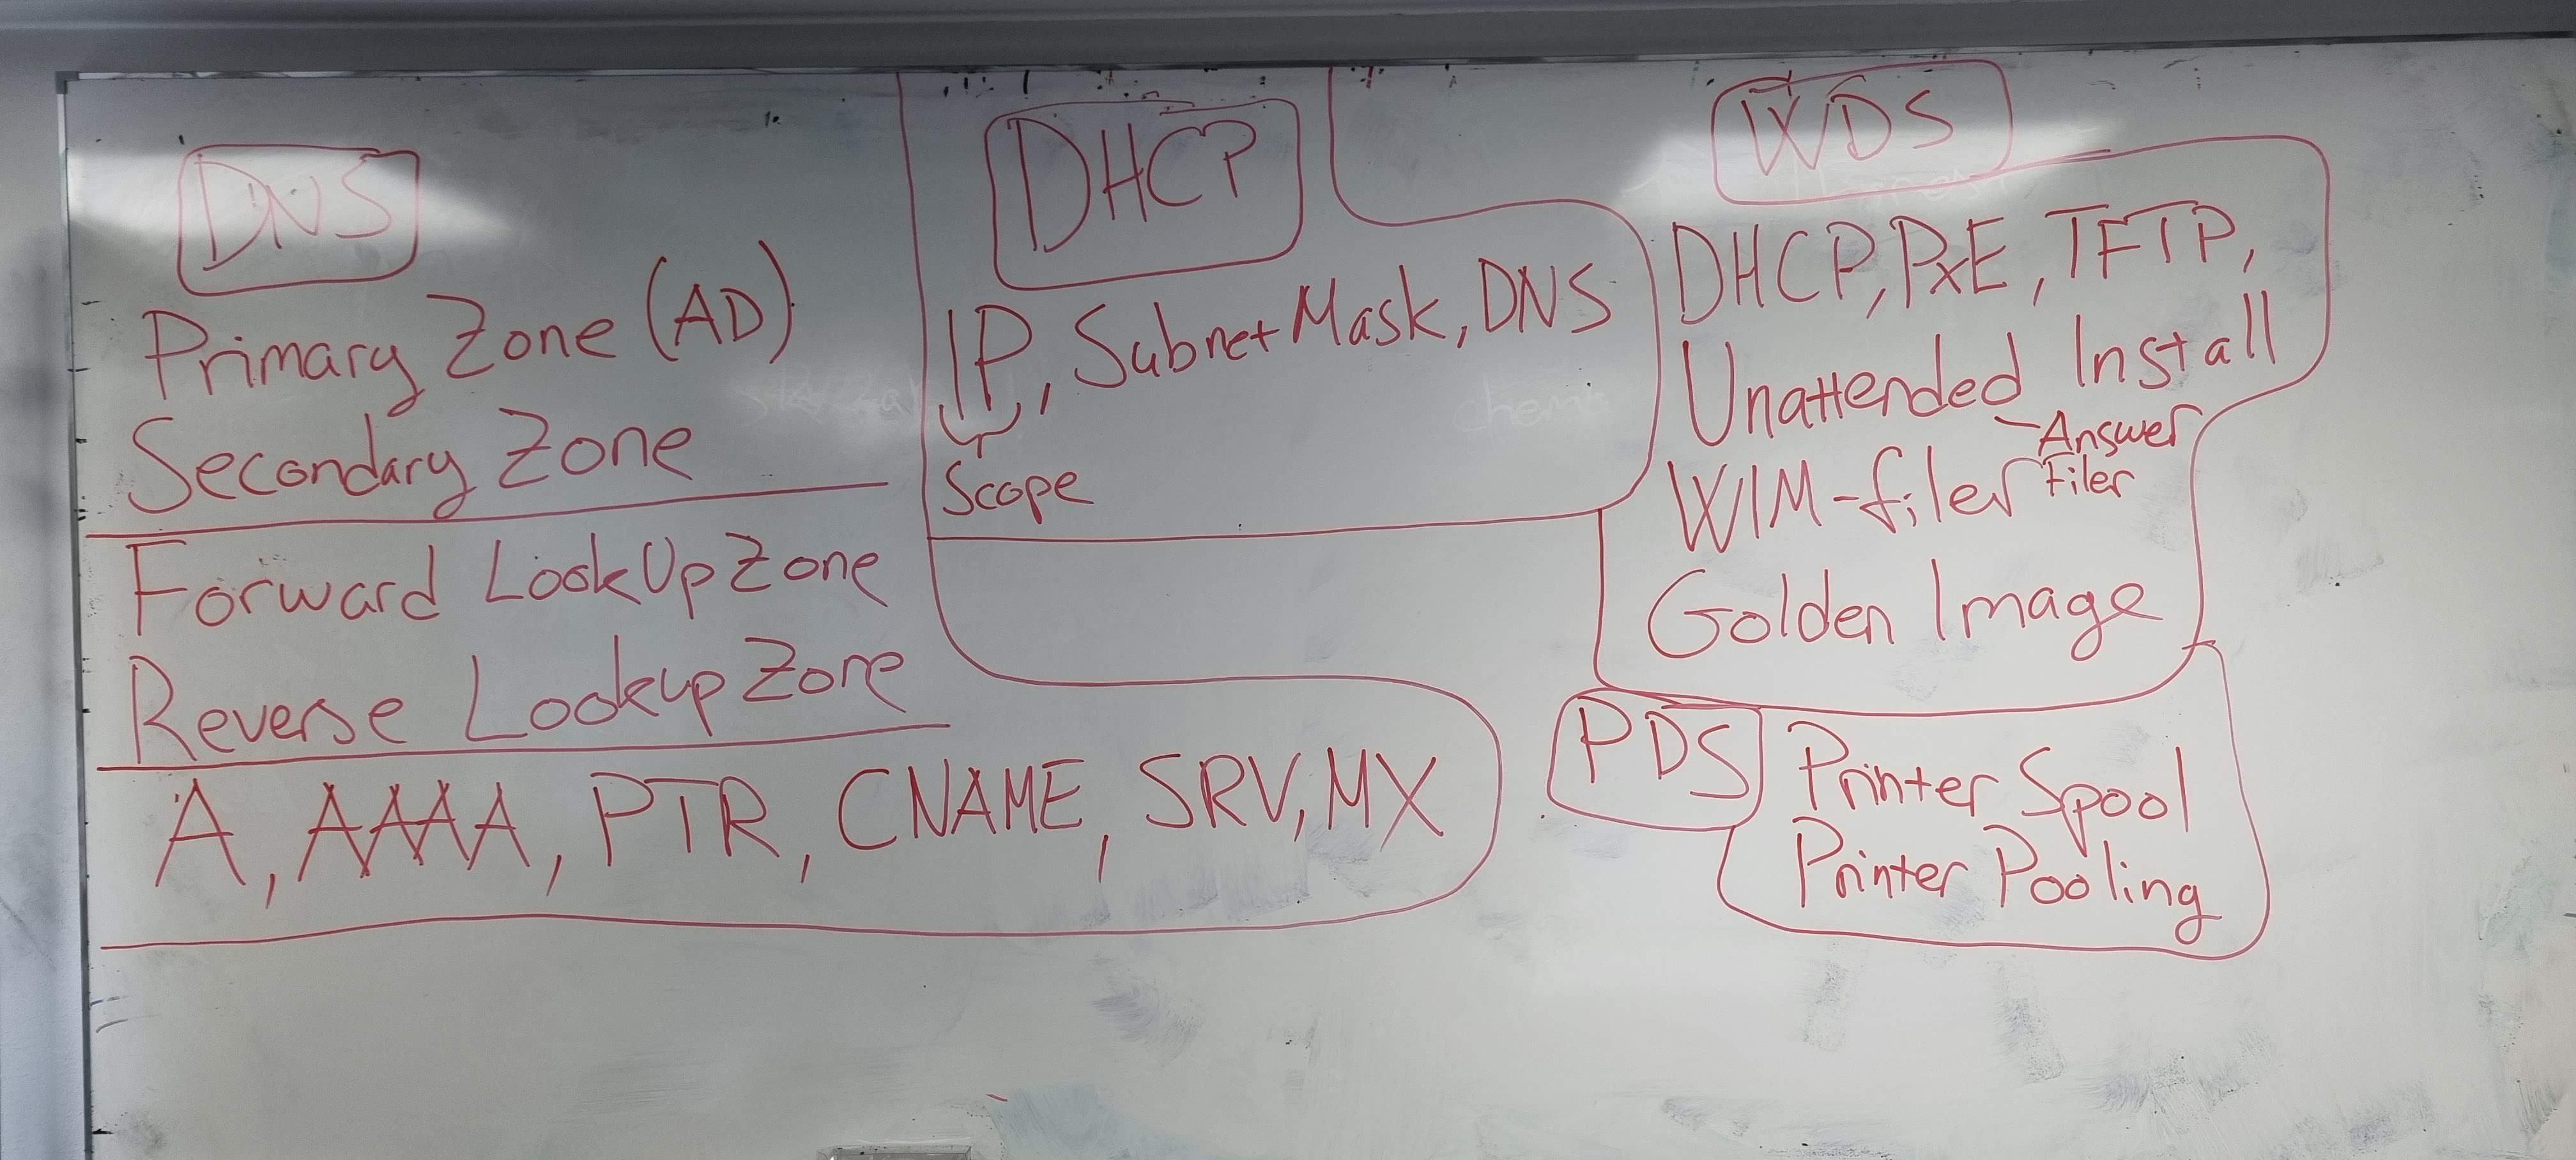 DNS
Primary Zone (AD)
Secondary Zone
Forward LookUp Zone
Reverse Lookup Zone
A, AAAA, PTR, CNAME, SRV, MX
DHCP
IP, Subnet Mask, DNS
Scope
WDS
DHCP, PxE, TFTP,
Unattended Install
- Answer
Filer
WIM-filer
Golden Image
PDS
Printer Spool
Printer Pooling